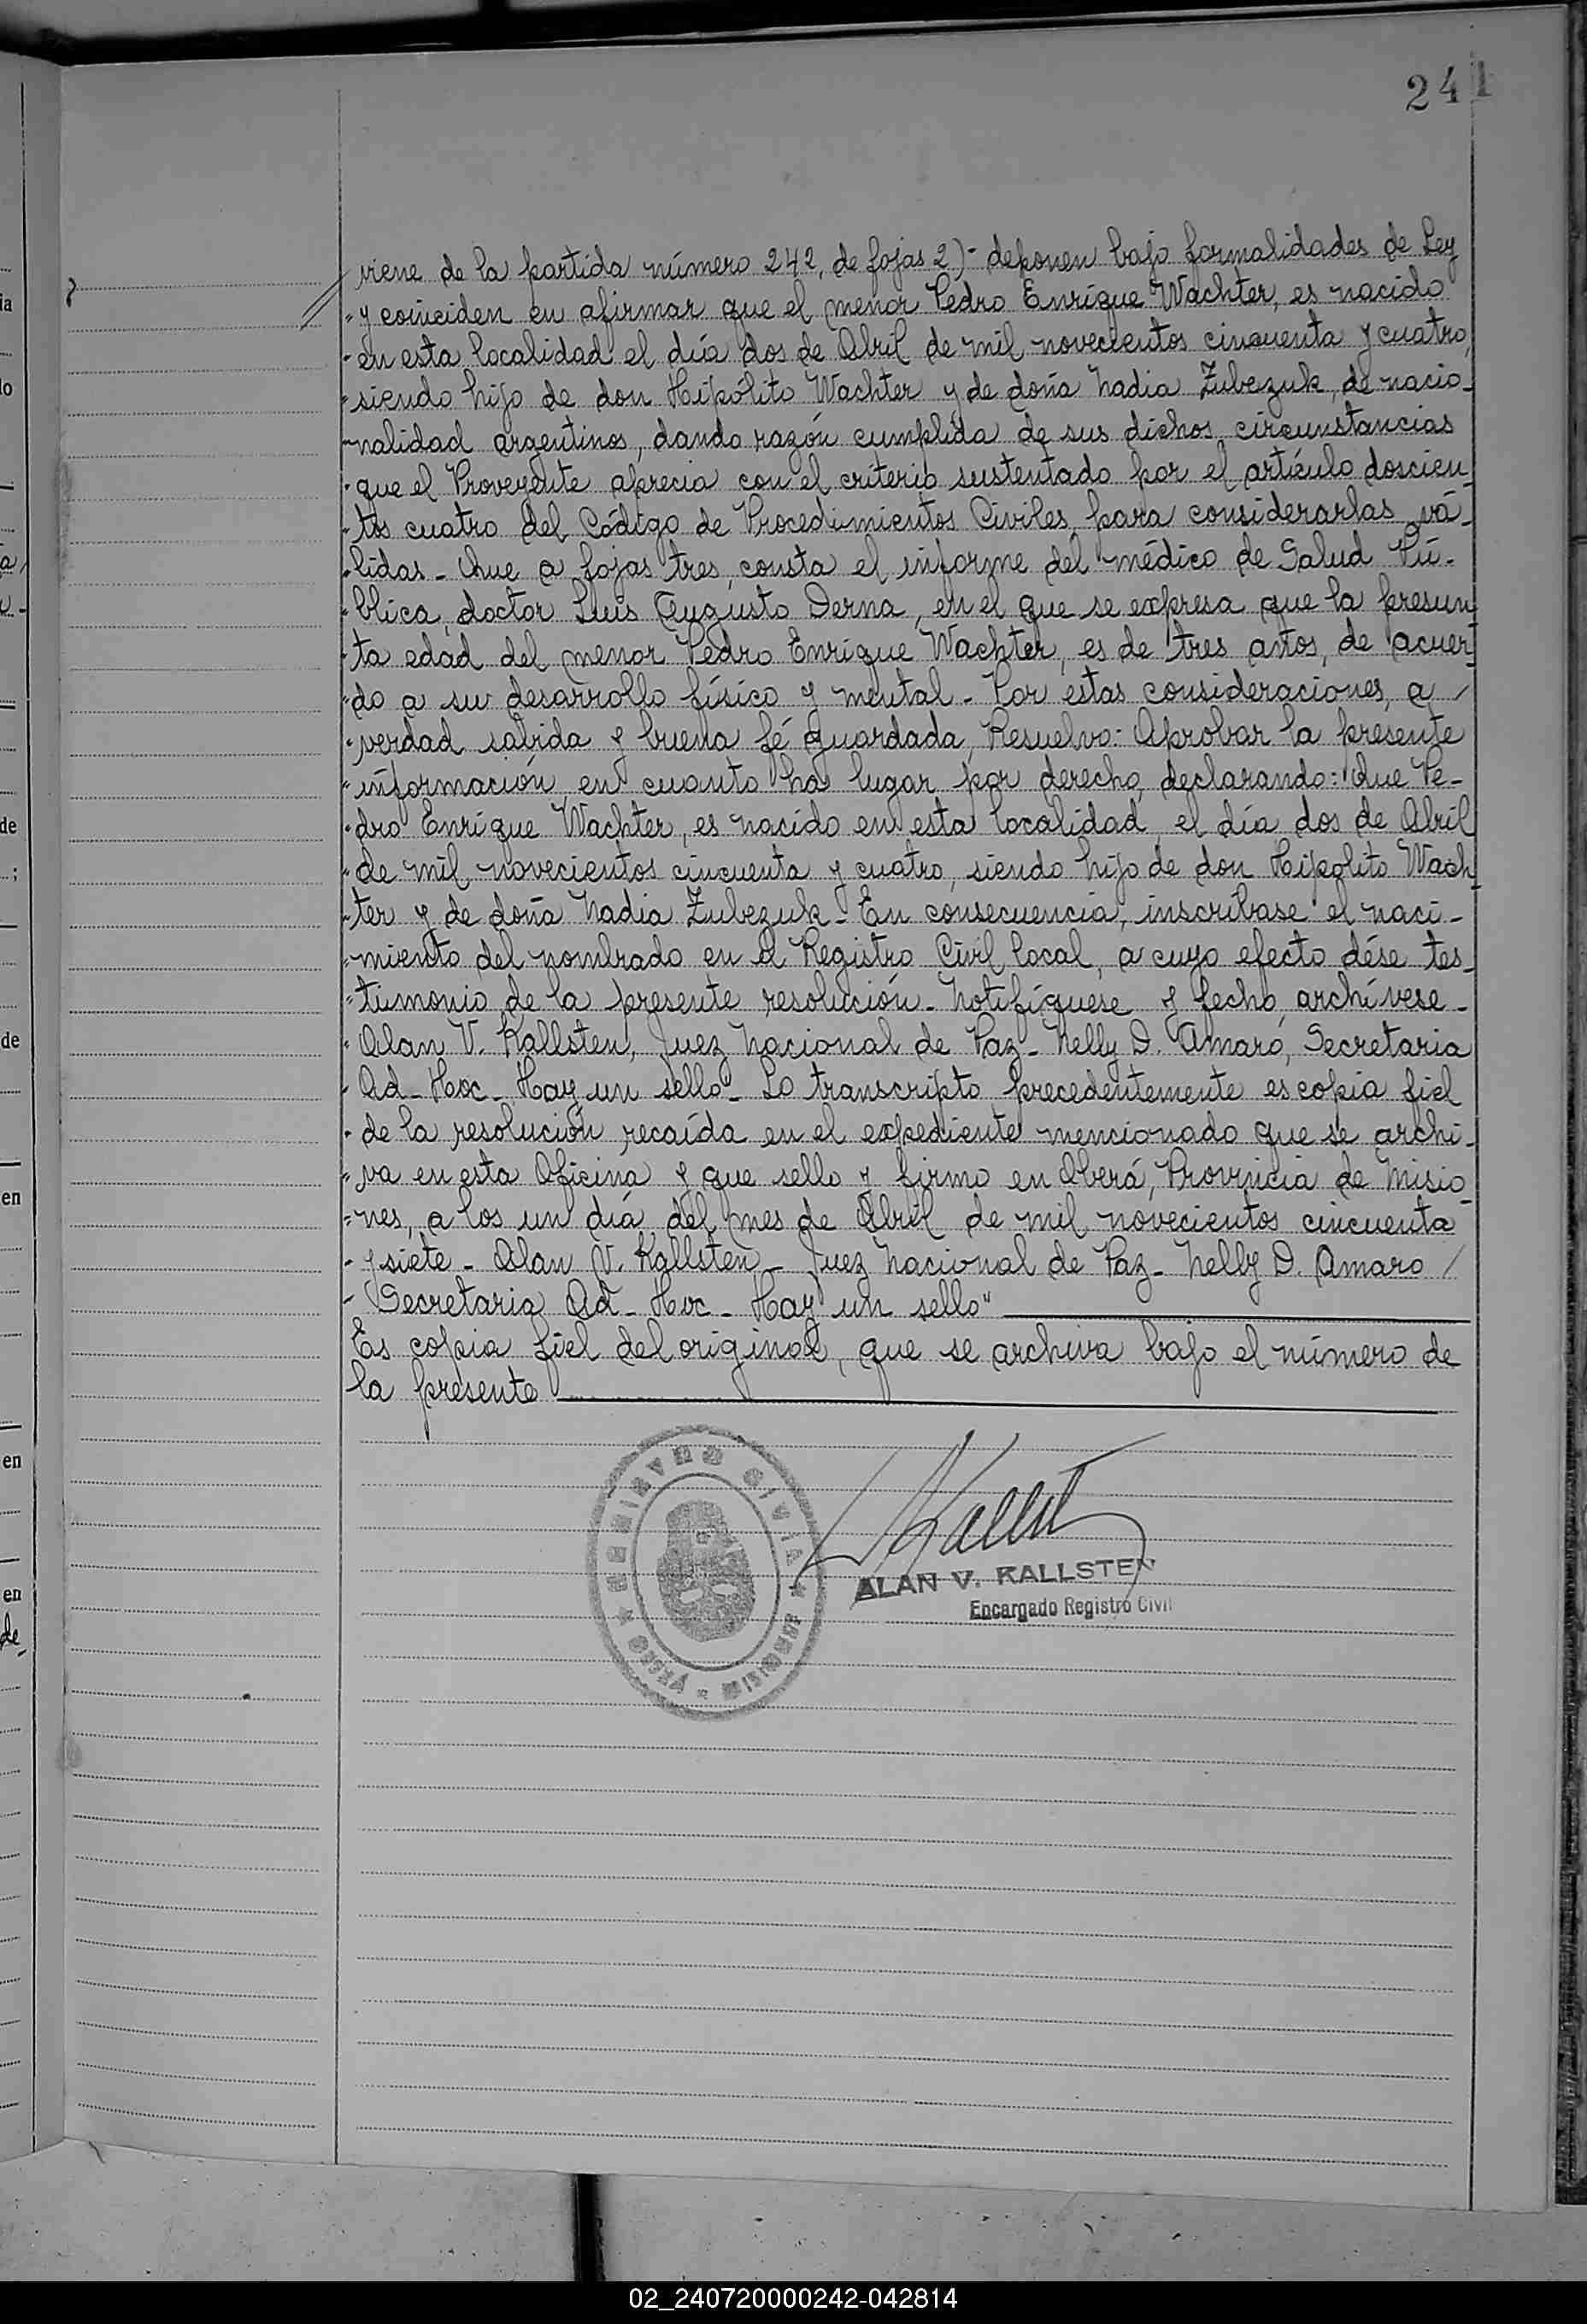 241
viene de la partida número 242, de fojas 2)- deponen bajo formalidades de Ley
" y coinciden en afirmar que el menor Pedro Enrique Wachter, es nacido
" en esta localidad el día dos de Abril de mil novecientos cincuenta y cuatro,
" siendo hijo de don Hipólito Wachter y de doña Nadia Zubezuk, de nacio-
" nalidad argentinos, dando razón cumplida de sus dichos, circunstancias
" que el Proveyente aprecia con el criterio sustentado por el artículo doscien-
" tos cuatro del Código de Procedimientos Civiles, para considerarlas vá-
" lidas - Que a fojas tres, consta el informe del médico de Salud Pú-
" blica, doctor Luis Augusto Derna, en el que se expresa que la presun-
" ta edad del menor Pedro Enrique Wachter, es de tres años, de acuer-
" do a su desarrollo físico y mental - Por estas consideraciones, a /
" verdad sabida y buena fé guardada, Resuelvo: Aprobar la presente
" información en cuanto ha lugar por derecho, declarando: Que Pe-
" dro Enrique Wachter, es nacido en esta localidad, el día dos de Abril
" de mil novecientos cincuenta y cuatro, siendo hijo de don Hipolito Wach-
" ter y de doña Nadia Zubezuk - En consecuencia, inscríbase el naci-
" miento del nombrado en el Registro Civil local, a cuyo efecto dése tes-
" timonio de la presente resolución - Notifíquese y fecho, archívese -
" Alan V. Kallsten, Juez Nacional de Paz - Nelly D. Amaro, Secretaria
" Ad - Hoc - Hay un sello - Lo transcripto precedentemente es copia fiel
" de la resolución recaída en el expediente mencionado que se archi-
" va en esta Oficina y que sello y firmo en Oberá, Provincia de Misio-
" nes, a los un día del mes de Abril de mil novecientos cincuenta
" y siete - Alan V. Kallsten - Juez Nacional de Paz - Nelly D. Amaro /
" Secretaria Ad - Hoc - Hay un sello"
Es copia fiel del original, que se archiva bajo el número de
la presente
REGISTRO CIVIL
OBERÁ
MISIONES
ALAN V. KALLSTEN
Encargado Registro Civil
de
de
en
en
en
de
02_240720000242-042814